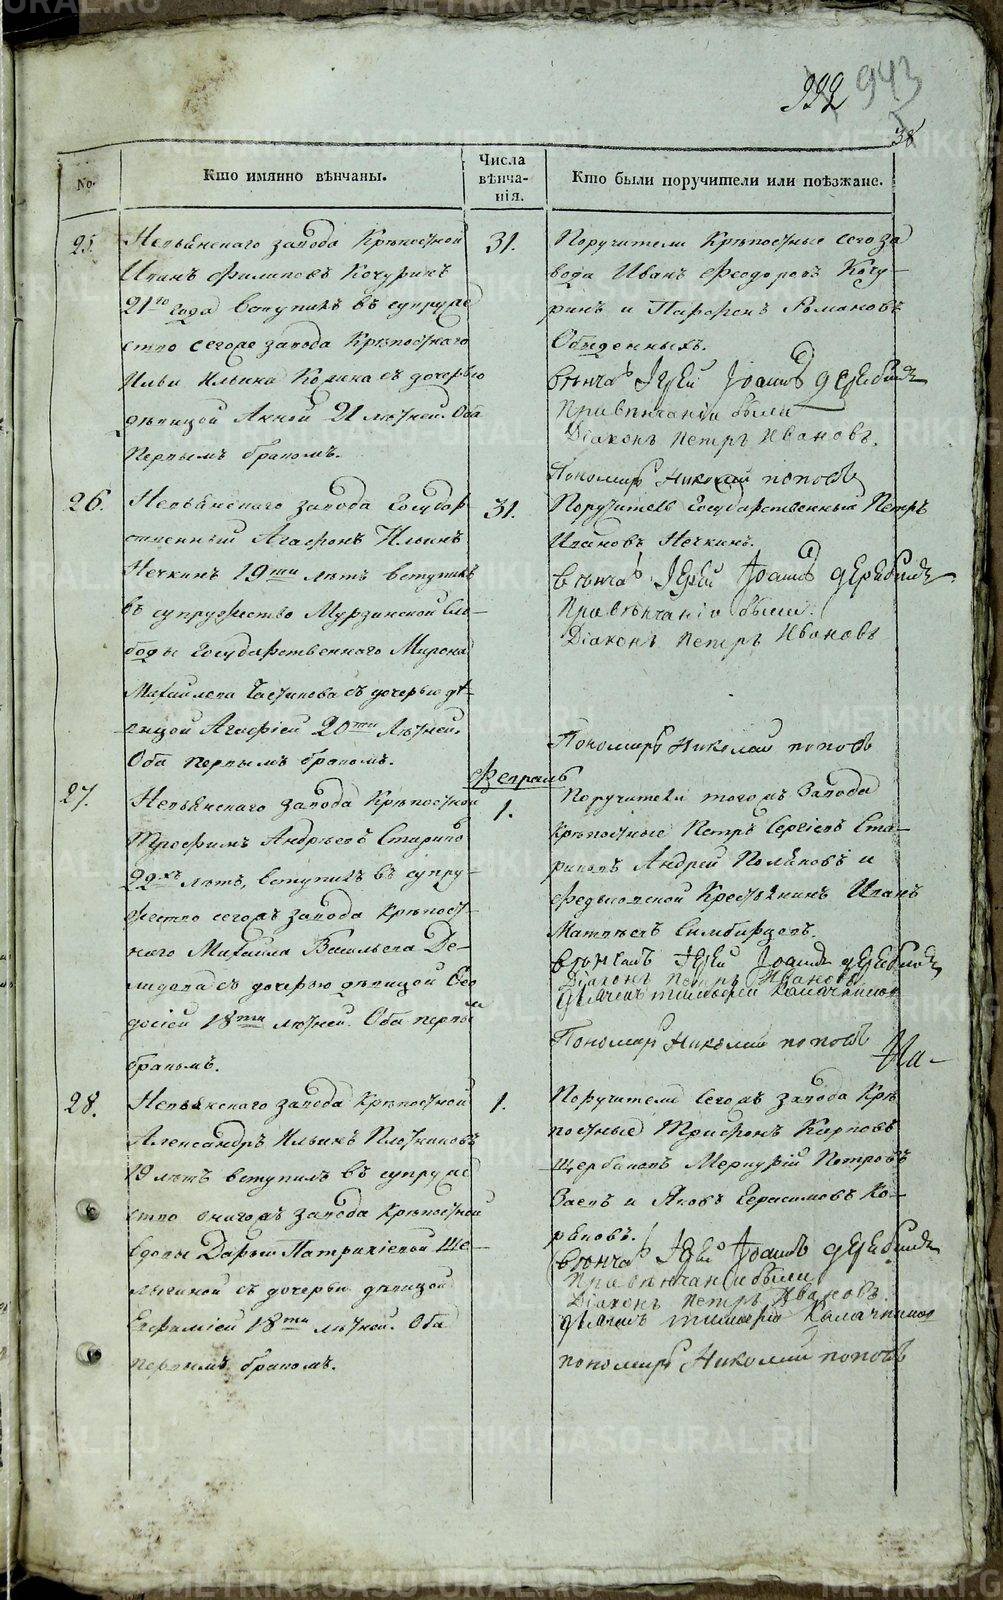 992 943
38
No.
Кто имянно вѣнчаны.
Числа
вѣнча-
нія.
Кто были поручители или поѣзжане.
25.
Невьянскаго завода Крѣпостной
Иванъ Филиповъ Кочуринъ
21го года вступилъ въ супруже
ство сегоже завода Крѣпостнаго
Ильи Ильина съ дочерью
дѣвицой Анной 21 лѣтней. Оба
первымъ бракомъ.
31.
Поручители Крѣпостные сего за
вода Иванъ Феодоровъ Кочу-
ринъ и Парфенъ Романовъ
Обыденныхъ.
вѣнча Іерей Іоаннъ Дерябинъ
При вѣнчаніи были
Діаконъ Петръ Ивановъ.
Пономарь Николай Поповъ
26.
Невьянскаго завода Государ
ственный Агафонъ Ильинъ
Нечкинъ 19ти лѣтъ вступилъ
въ супружество Мурзинской Сло-
боды Государственнаго Мирона
Михайлова съ дочерью дѣ-
вицой Агафіей 20ти лѣтней.
Оба первымъ бракомъ.
31.
Поручитель Государственный Петръ
Ивановъ Нечкинъ.
вѣнча Іерей Іоаннъ Дерябинъ
При вѣнчаніи были
Діаконъ Петръ Ивановъ
Пономарь Николай Поповъ
Февраль
27.
Невьянскаго завода Крѣпостной
Трофимъ Андреевъ Стариковъ
22хъ лѣтъ, вступилъ въ супру-
жество сегожъ завода крѣпост-
наго Михайла Васильева Де-
мидова съ дочерью дѣвицой Ѳео
досіей 18ти лѣтней. Оба первы
бракомъ.
1.
Поручители тогожъ Завода
крѣпостные Петръ Сергіевъ Ста-
риковъ Андрей Поляковъ и
Крестьянинъ Иванъ
Матвѣевъ Симбирцовъ.
вѣнчалъ Іерей Іоаннъ Дерябинъ
Діаконъ Петръ Ивановъ
Дьячекъ Тимофей Калачниковъ
Пономарь Николай Поповъ
28.
Невьянскаго завода Крѣпостной
Александръ Ильинъ Плотниковъ
19 лѣтъ вступилъ въ супруже
ство онагожъ завода Крѣпостной
вдовы Дарьи Патрикіевой Ще-
с дочерью дѣвицой
Евфиміей 18ти лѣтней. Оба
первымъ бракомъ.
1.
Поручители Сегожъ завода Крѣ
постные Трифонъ Карповъ
Щербаковъ Меркурій Петровъ
Заевъ и Яковъ Герасимовъ Ко-
ряковъ.
вѣнча Іерей Іоаннъ Дерябинъ
При вѣнчаніи были
Діаконъ Петръ Ивановъ.
Дьячекъ Тимофей Калачниковъ
пономарь Николай Поповъ
METRIKI.GASO-URAL.RU